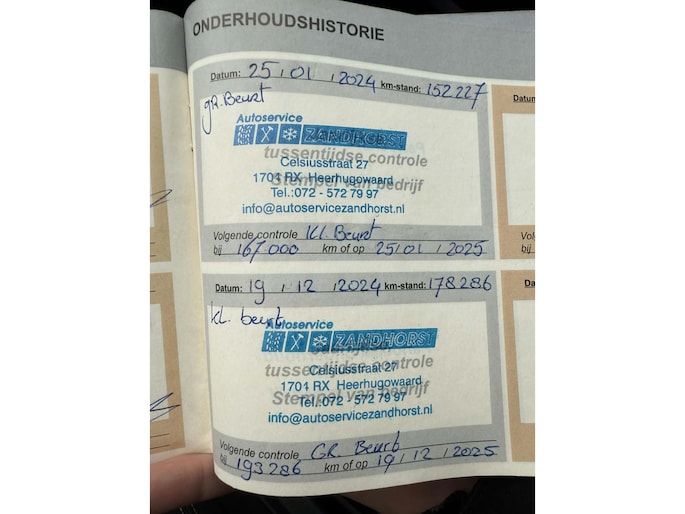 ONDERHOUDSHISTORIE
Datum: 25 / 01 / 2024 km-stand: 152227
gR. Beurt
Autoservice
ZANDHORST
tussentijdse controle
Celsiusstraat 27
1701 RX Heerhugowaard
Stempel van bedrijf
Tel.:072 - 572 79 97
info@autoservicezandhorst.nl
Volgende controle Kl. Beurt
bij 167000 km of op 25/01/2025
Datum: 19 / 12 / 2024 km-stand: 178286
kl. beurt
Autoservice
ZANDHORST
tussentijdse controle
Celsiusstraat 27
1701 RX Heerhugowaard
Stempel van bedrijf
Tel.:072 - 572 79 97
info@autoservicezandhorst.nl
Volgende controle GR. Beurt
bij 193286 km of op 19/12/2025
Datum
Vol
bij
Datum
Vol
bij